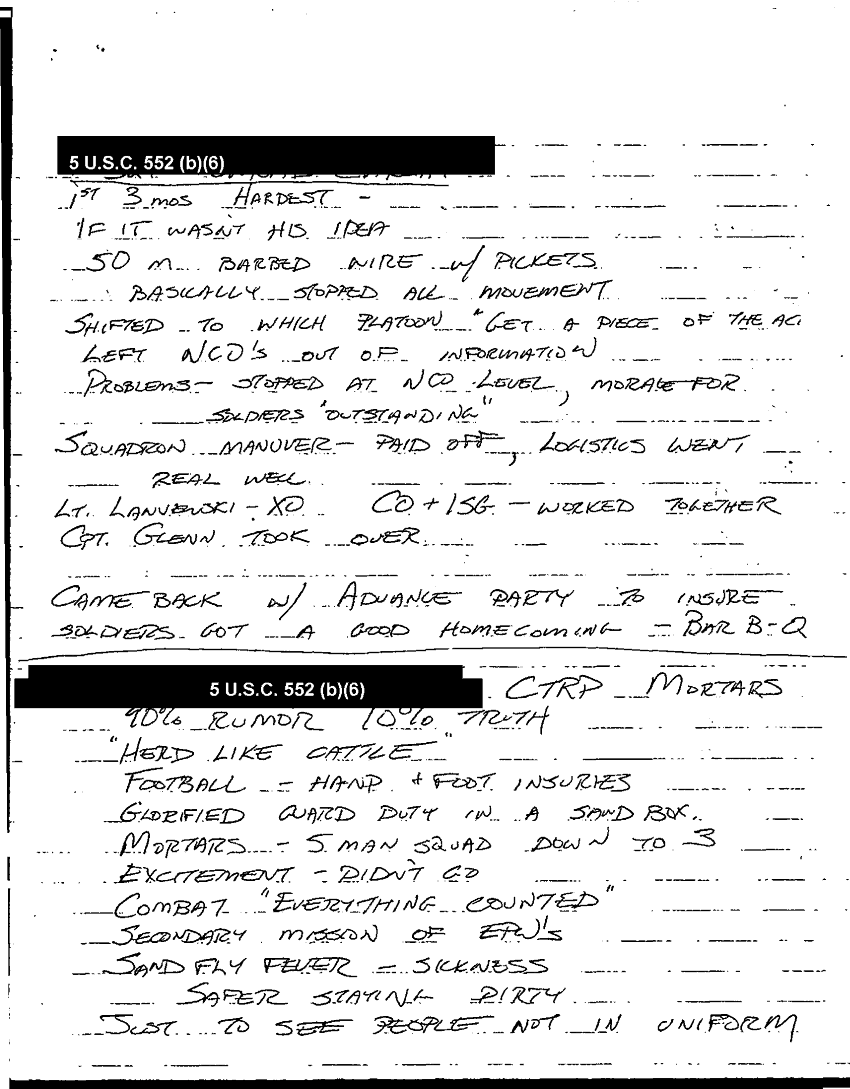 5 U.S.C. 552 (b)(6)
1ST 3 MOS HARDEST -
IF IT WASN'T HIS IDEA
50 M BARBED WIRE W/ PICKETS
BASICALLY STOPPED ALL MOVEMENT
SHIFTED TO WHICH PLATOON "GET A PIECE OF THE AC
LEFT NCO'S OUT OF INFORMATION
PROBLEMS - STOPPED AT NCO LEVEL, MORALE FOR
SOLDIERS "OUTSTANDING"
SQUADRON MANUVER - PAID OFF, LOGISTICS WENT
REAL WELL
LT. - XO CO + 1SG - WORKED TOGETHER
CPT. GLENN TOOK OVER
CAME BACK W/ ADVANCE PARTY TO INSURE
SOLDIERS GOT A GOOD HOMECOMING - BAR B-Q
5 U.S.C. 552 (b)(6) CTRP MORTARS
90% RUMOR 10% TRUTH
"HERD LIKE CATTLE"
FOOTBALL - HAND + FOOT INJURIES
GLORIFIED GUARD DUTY IN A SAND BOX.
MORTARS - 5 MAN SQUAD DOWN TO 3
EXCITEMENT - DIDN'T GO
COMBAT "EVERYTHING COUNTED"
SECONDARY MISSION OF EPW'S
SAND FLY FEVER = SICKNESS
SAFER STAYING DIRTY
JUST TO SEE PEOPLE NOT IN UNIFORM